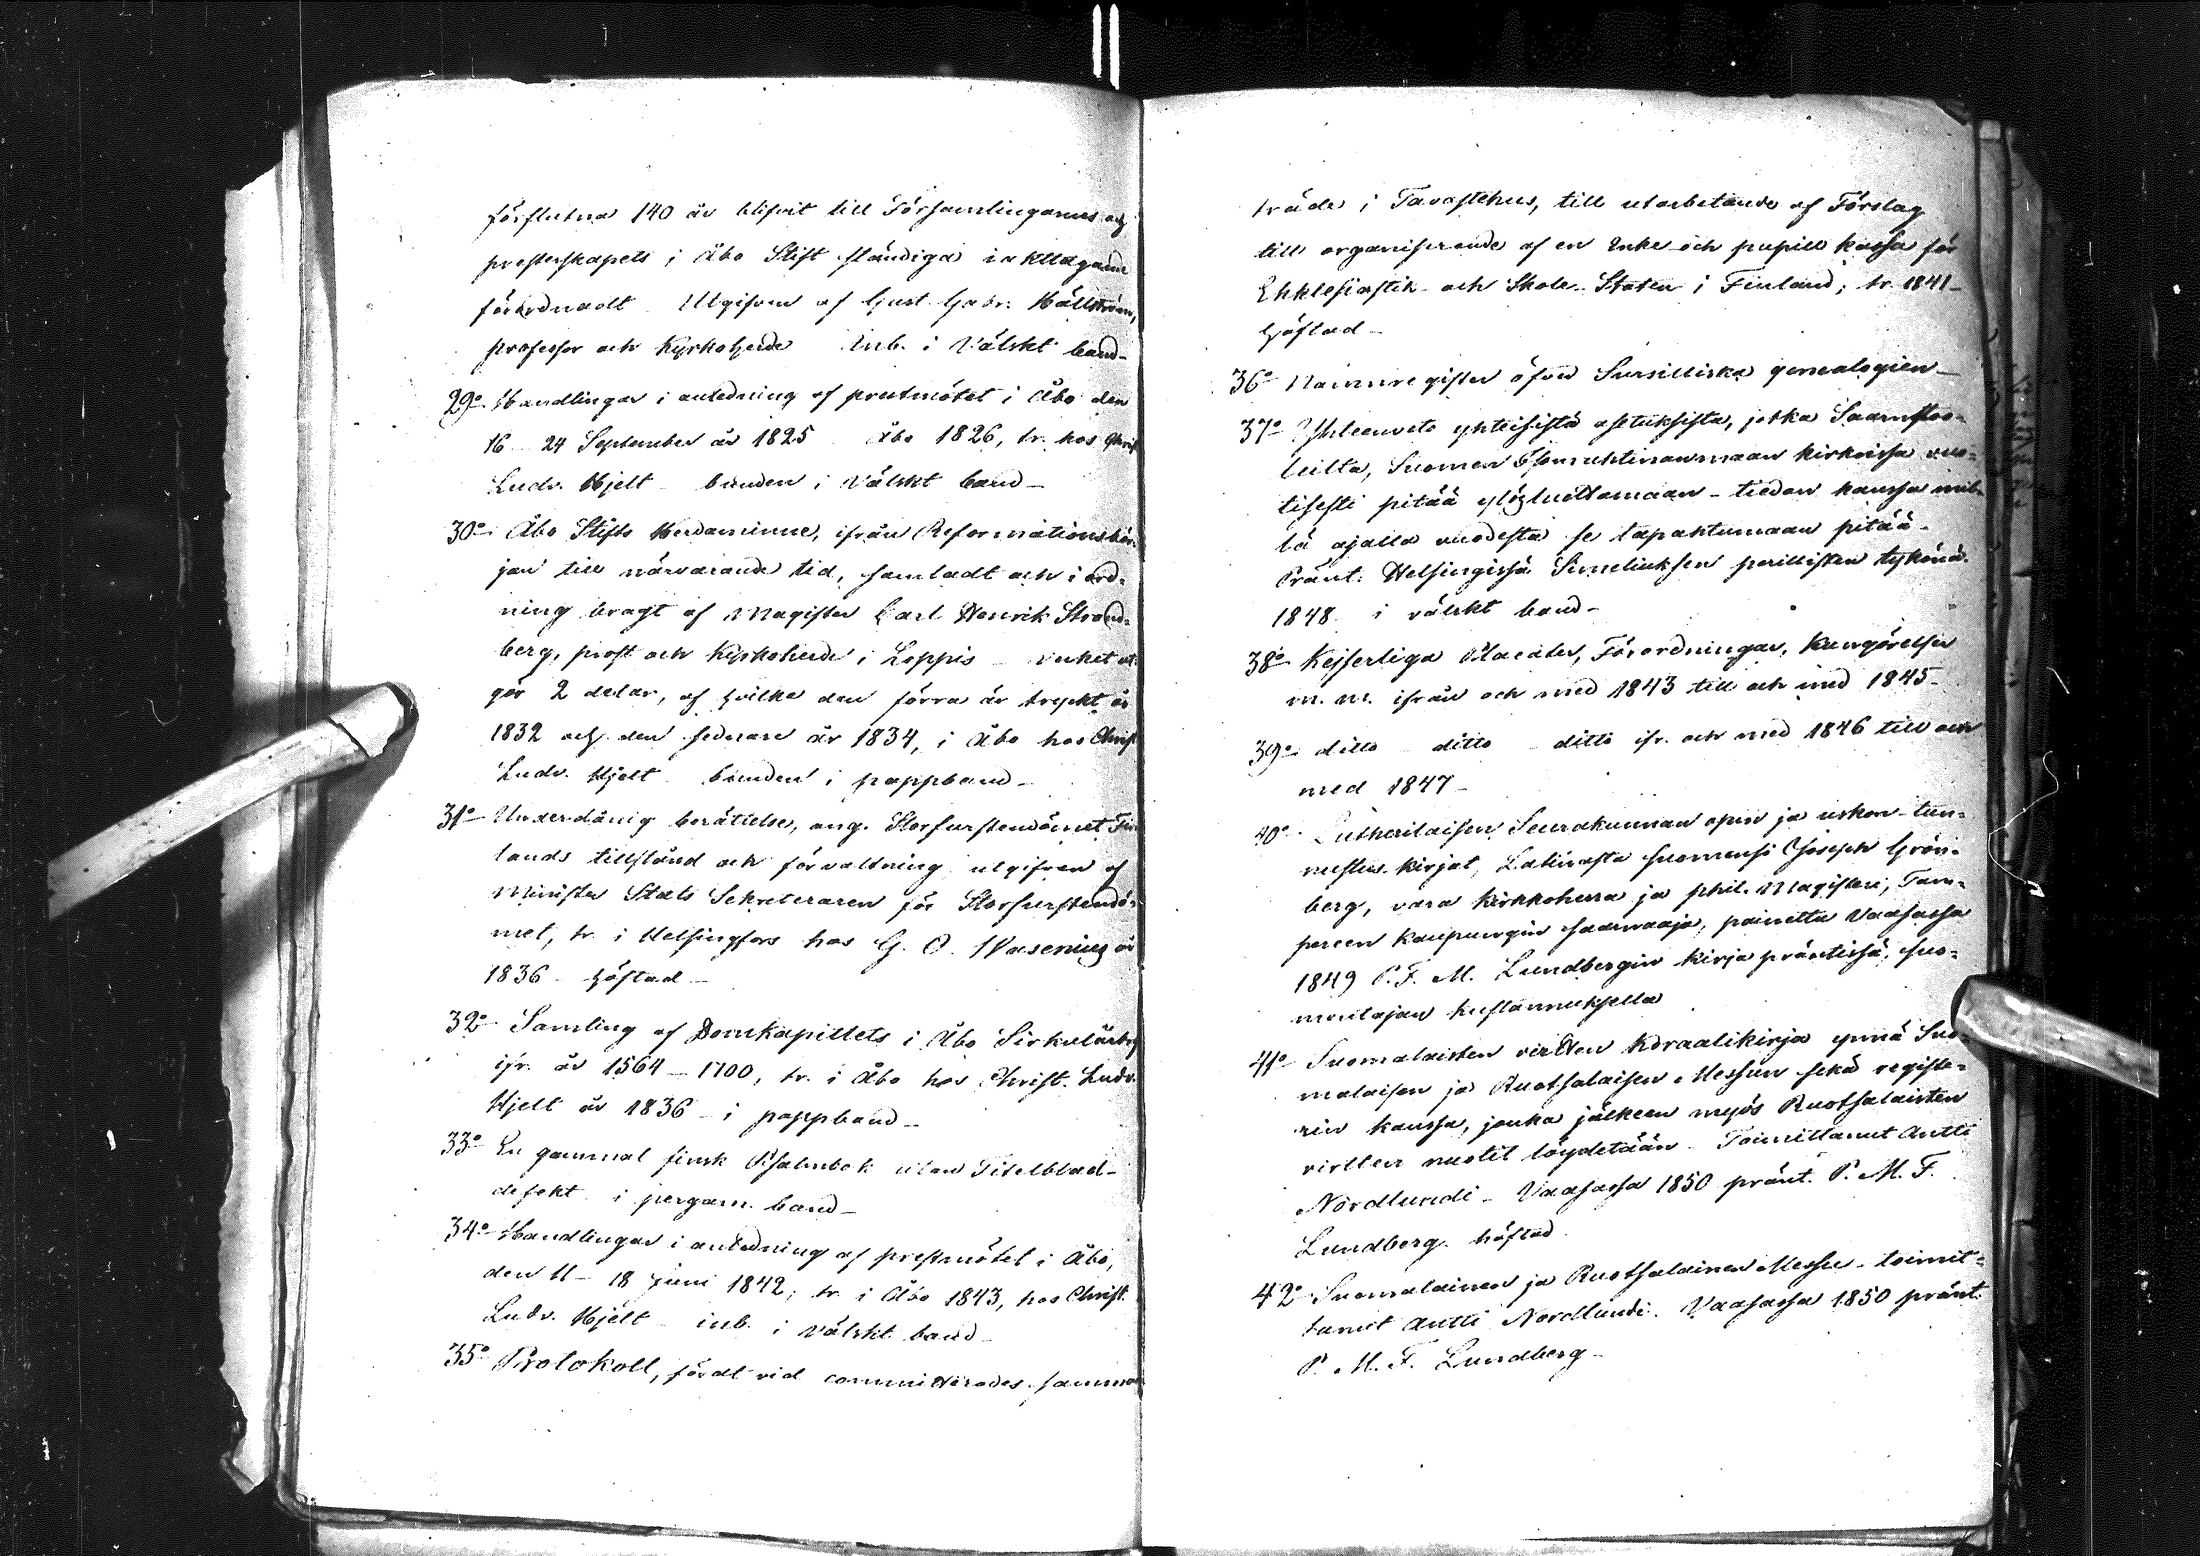 förflutna 140 år blifvit till Församlingarnes och
presterskapets i Åbo Stift ständiga iakttagande
förordnadt Utgifven af Gust. Gabr. Hällström,
professor och Kyrkoherde Inb. i Wälskt band_
29o Handlingar i anledning af prestmötet i Åbo den
16_24 September år 1825 Åbo 1826, tr. hos Christ
Ludv. Hjelt_ bunden i Välskt band_
30o Åbo Stifts Herdaminne, ifrån Reformationsbör-
jan till närvarande tid, samladt och i ord-
ning bragt af Magister Carl Henrik Strand-
berg, prost och Kyrkoherde i Loppis _ verket ut
gör 2 delar, af hvilka den förra är tryckt år
1832 och den sednare år 1834, i Åbo hos Christ
Ludv. Hjelt_ bunden i pappband_
31o Underdånig berättelse, ang. Storfurstendömet Fin
lands tillstånd och förvaltning utgifven af
Minister Stats Sekreteraren för Storfurstendö-
met, tr. i Helsingfors hos G. O. Wasenius år
1836_ häftad_
32o Samling af Domkapitlets i Åbo Sirkulärbref
ifr. år 1564_1700, tr. i Åbo hos Christ. Ludv.
Hjelt år 1836_ i pappband_
33o En gammal finsk Psalmbok utan Titelblad_
defekt i pergam. band_
34o Handlingar i anledning af prestmötet i Åbo,
den 11_18 Juni 1842; tr. i Åbo 1843, hos Christ.
Ludv. Hjelt_ inb. i välskt band_
35o Protokoll, fördt vid committerades samman
träde i Tavastehus, till utarbetande af Förslag
till organiserande af en Enke och pupill kassa för
Ekklesiastik- och Skole-Staten i Finland; tr. 1841_
häftad_
36o Namnregister öfver Sursilliska genealogien_
37o Yhteenveto yhteisistä asetuksista, jotka Saarnstoo-
leilta, Suomen Isoruhtinanmaan kirkoissa vuo-
tisesti pitää ylösluettamaan_ tiedon kanssa mil-
lä ajalla vuodesta se tapahtumaan pitää_
Pränt: Helsingissä Simeliuksen perillisten tykönä.
1848 i välskt band_
38o Kejserliga Placater, Förordningar, Kungörelser
m. m. ifrån och med 1843 till och med 1845_
39o ditto _ ditto _ ditto ifr. och med 1846 till och
med 1847_
40o Lutherilaisen Seurakunnan opin ja uskon-tun-
nustus-kirjat, Latinasta suomensi Joseph Grön-
berg, vara Kirkkoherra ja phil. Magisteri, Tam-
pereen kaupungin saarnaaja, painettu Vaasassa
1849 P. F. M. Lundbergin kirja präntissä, suo-
mentajan kustannuksella
41o Suomalaisten virtten Koraalikirja ynnä Suo-
malaisen ja Ruotsalaisen Messun sekä registe-
rin kanssa, jonka jälkeen myös Ruotsalaisten
virtten nuotit löydetään_ Toimittanut Antti
Nordlundi_ Vaasassa 1850 pränt. P. M. F.
Lundberg. häftad
42o Suomalainen ja Ruotsalainen Messu_ toimit-
tanut Antti Nordlundi. Vaasassa 1850 pränt.
P. M. F. Lundberg_